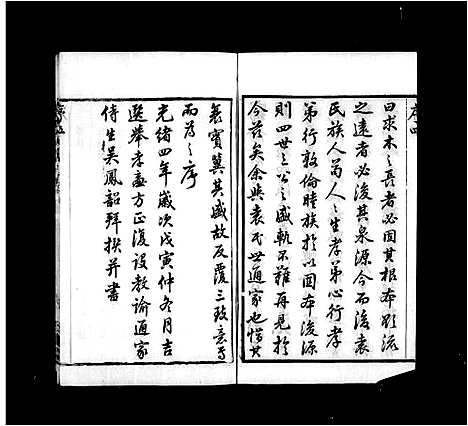 曰求木之長者必固其根本欲流
之遠者必浚其泉源今而後袁
民族人爲人之生孝弟心行孝
弟行敦倫睦族於以固本浚源
則四世三公之盛軌不難再見於
今茲矣余與袁氏世通家也惜其
衰實冀其盛故反覆三致意焉
而爲之序
光緒四年歲次戊寅仲冬月吉
選舉孝廉方正復設教諭通家
侍生吳鳳韶拜撰并書